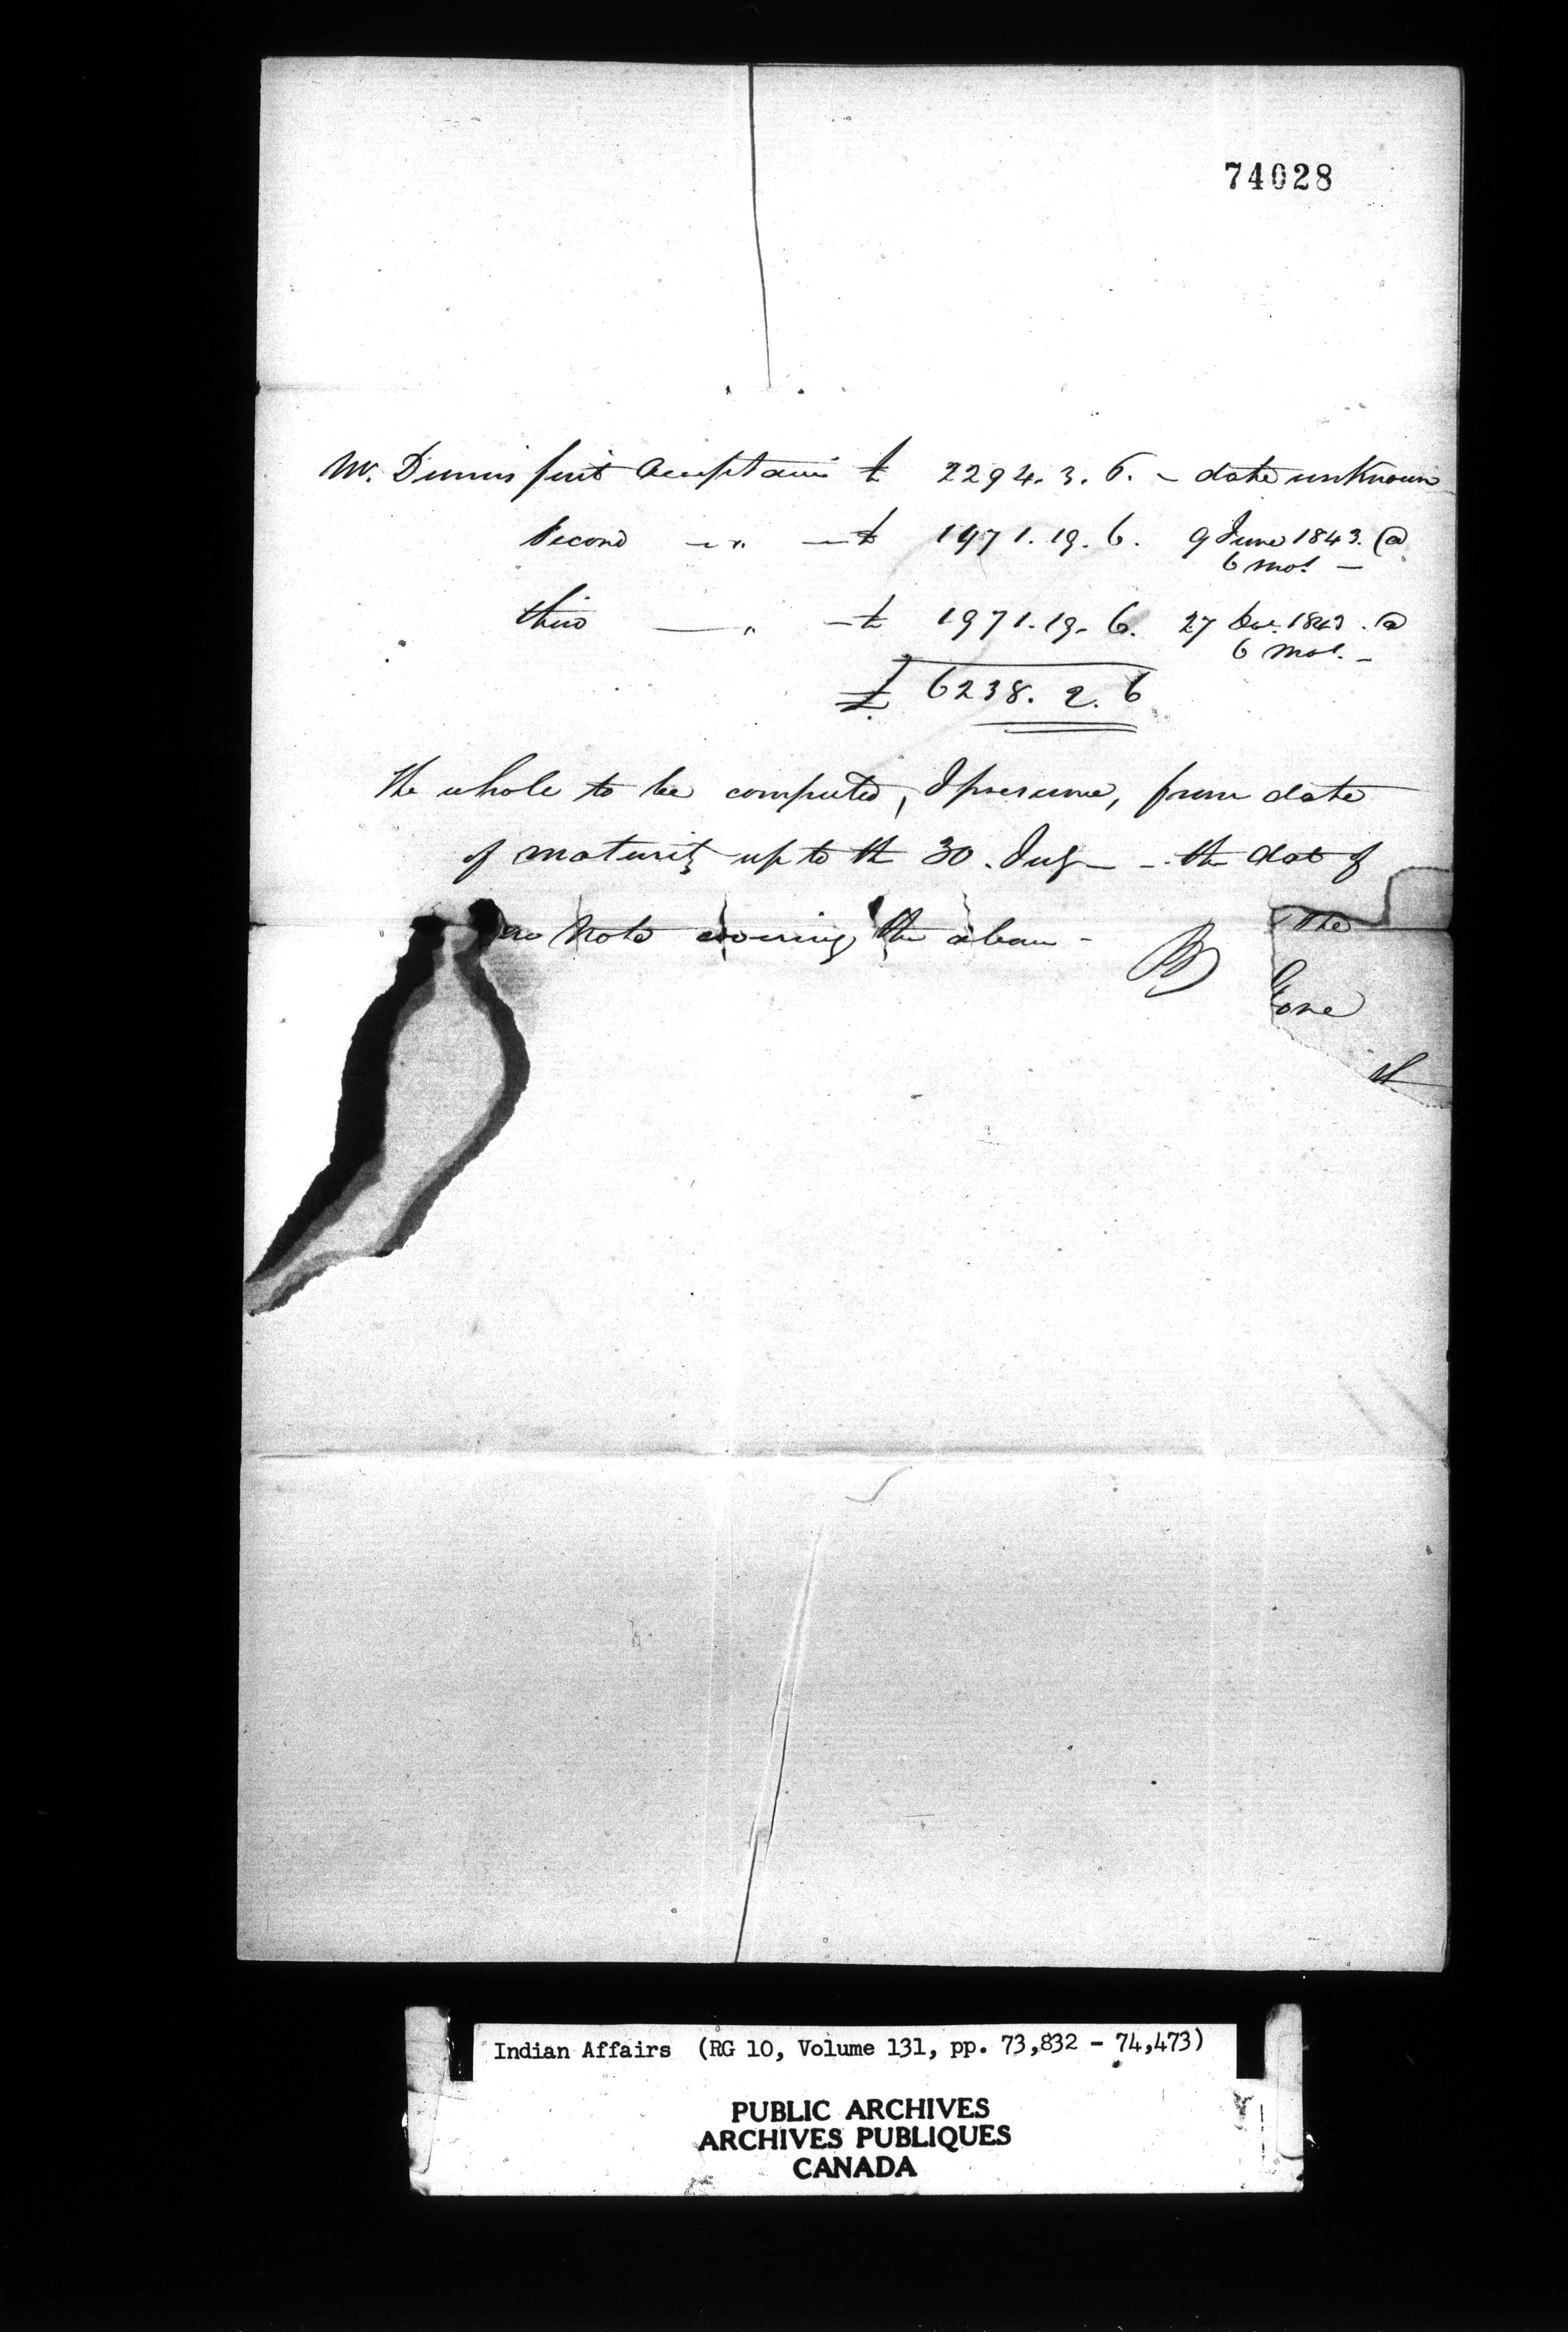 74028
Mr. Dunns first Acceptance £ 2294. 3. 6. - date unknown
Second — " — £ 1971. 19. 6. 9 June 1843. @
6 mos. —
third — " — £ 1971. 19. 6. 27 Dec. 1843. @
6 mos. —
£ 6238. 2. 6
the whole to be computed, I presume, from date
of maturity up to the 30. July — the date of
Note covering the above -
The
Gone
Indian Affairs (RG 10, Volume 131, pp. 73,832 - 74,473)
PUBLIC ARCHIVES
ARCHIVES PUBLIQUES
CANADA